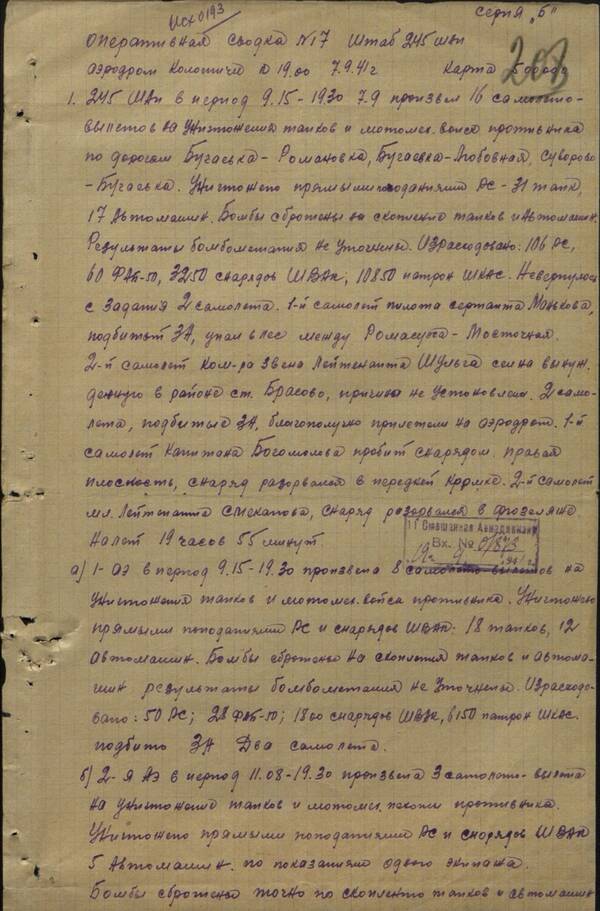 Исх 0193
серия „Б"
203
Оперативная сводка №17 Штаб 245 шап
аэродром Колотичи к 19.00 7.9.41г Карта 500000
1. 245 шап в период 9.15-19.30 7.9 произвел 16 самолето-
вылетов на уничтожения танков и мотомех. войск противника
по дорогам Бугаевка - Романовка, Бугаевка - Любовная, Суворово
- Бугаевка. Уничтожено прямыми попаданиями РС - 31 танк,
17 Автомашин. Бомбы сброшены на скопление танков и Автомашин.
Результаты бомбометания не уточнены. Израсходовано: 106 РС,
60 ФАБ-50, 3250 снарядов ШВАК, 10850 патрон ШКАС. Невернулось
с задания 2 самолета. 1-й самолет пилота сержанта Манькова,
подбитый ЗА, упал в лес между - Восточная.
2-й самолет ком-ра звена Лейтенанта Шульга сел на вынуж.
денную в районе ст. Брасово, причина не установлена. 2 само-
лета, подбитые ЗА, благополучно прилетели на аэродром. 1-й
самолет Капитана Богомолова пробит снарядом правая
плоскость, снаряд разорвался в передней кромке. 2-й самолет
мл. Лейтенанта снаряд разорвался в фюзеляже
Налет 19 часов 55 минут
Смешанная Авиадивизия
Вх. № 0/873
а) 1- АЭ в период 9.15-19.30 произвела 8 самолето-вылетов на
уничтожения танков и мотомех. войск противника. Уничтожено
прямыми попаданиями РС и снарядов ШВАК: 18 танков, 12
автомашин. Бомбы сброшены на скопления танков и автома-
шин результаты бомбометания не уточнены. Израсходо-
вано: 50 РС; 28 ФАБ-50; 1800 снарядов ШВАК, 6150 патрон ШКАС.
подбито ЗА Два самолета.
б) 2-я АЭ в период 11.08-19.30 произвела 3 самолето-вылета
на уничтожение танков и мотомех. пехоты противника.
Уничтожено прямыми попаданиями РС и снарядов ШВАК
5 Автомашин. по показаниям одного экипажа.
Бомбы сброшены точно по скоплению танков и автомашин